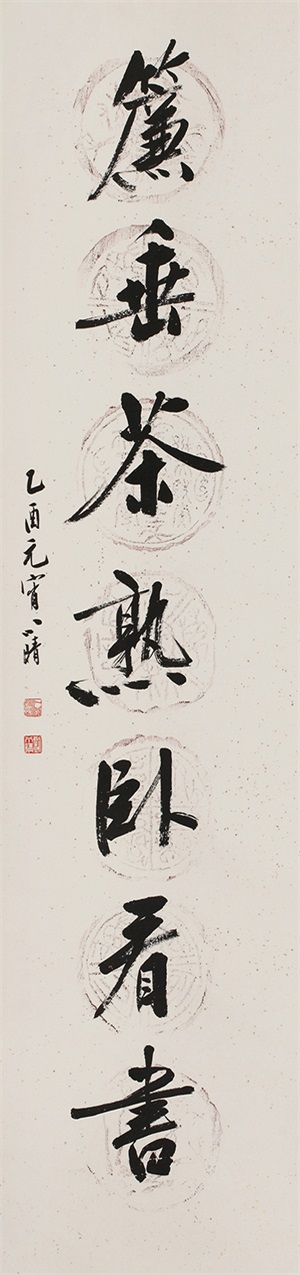 簾垂茶熟臥看書
乙酉元宵一晴